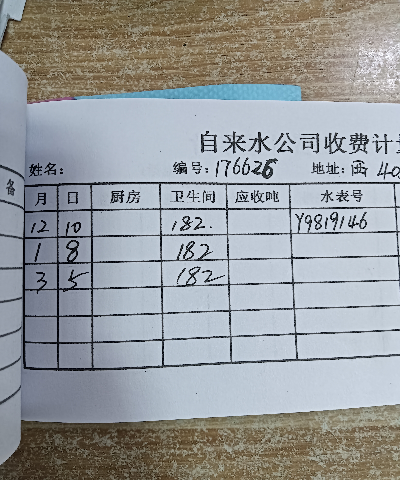 自来水公司收费计量
姓名: 编号:176626 地址:西40
备
月 日 厨房 卫生间 应收吨 水表号
12 10 182. Y9819146
1 8 182
3 5 182